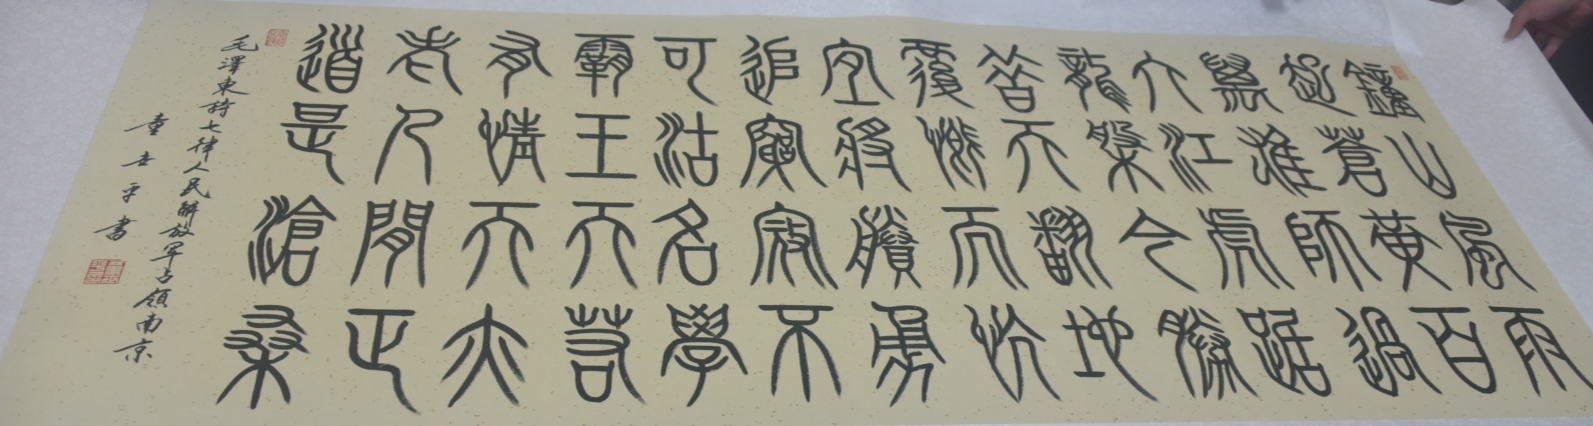 鐘山風雨
起蒼黄百
萬雄師過
大江虎踞
龍槃今勝
昔天翻地
覆慨而忼
宜將賸勇
追窮寇不
可沽名學
霸王天若
有情天亦
老人間正
道是滄桑
毛澤東詩七律人民解放軍占領南京
童世平書